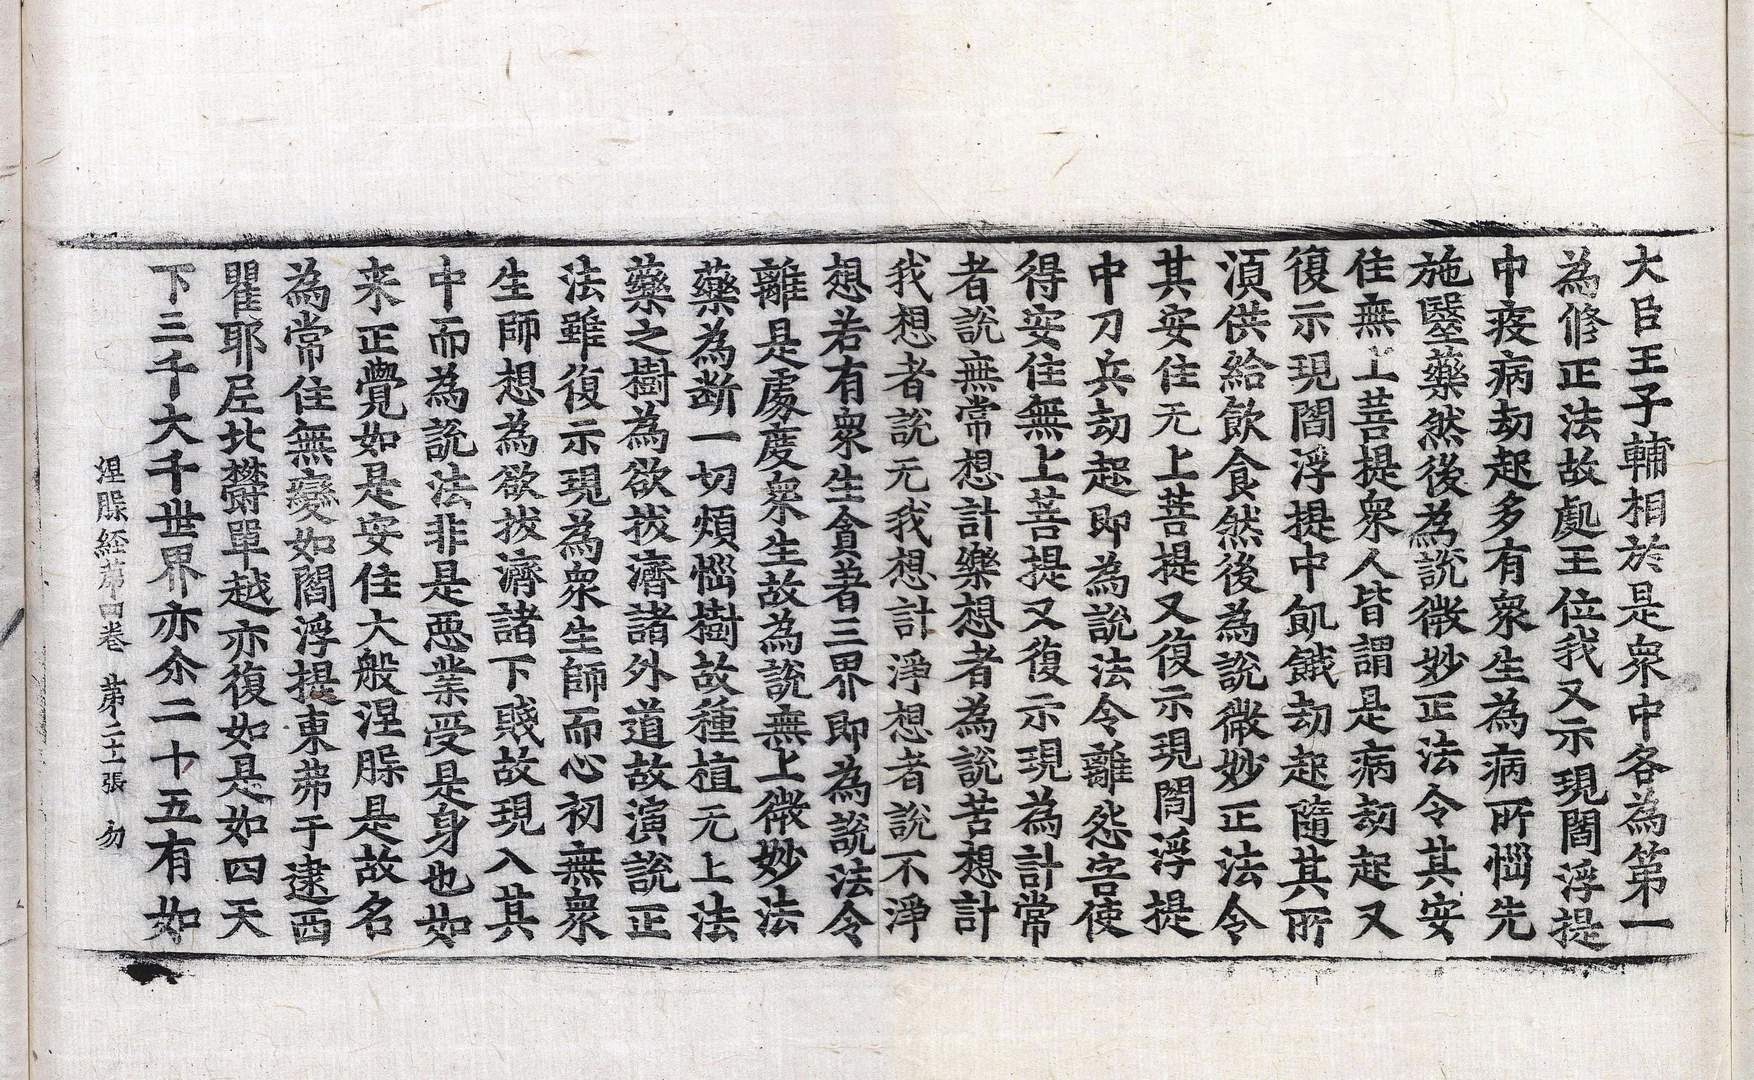 大臣王子輔相於是衆中各為第一
為脩正法故處王位我又示現閻浮提
中疫病劫起多有衆生為病所惱先
施醫藥然後為說微妙正法令其安
住無上菩提衆人皆謂是病劫起又
復示現閻浮提中飢餓劫起隨其所
湏供給飲食然後為說微妙正法令
其安住无上菩提又復示現閻浮提
中刀兵劫起即為說法令離怨害使
得安住無上菩提又復示現為計常
者說無常想計樂想者為說苦想計
我想者說无我想計淨想者說不淨
想若有衆生貪著三界即為說法令
離是處度衆生故為說無上微妙法
藥為断一切煩惱樹故種植无上法
藥之樹為欲拔濟諸外道故演說正
法雖復示現為衆生師而心初無衆
生師想為欲拔濟諸下賤故現入其
中而為說法非是惡業受是身也如
来正覺如是安住大般涅槃是故名
為常住無變如閻浮提東弗于逮西
瞿耶尼北欝單越亦復如是如四天
下三千大千世界亦尒二十五有如
涅槃経苐四卷 苐二十張 勿